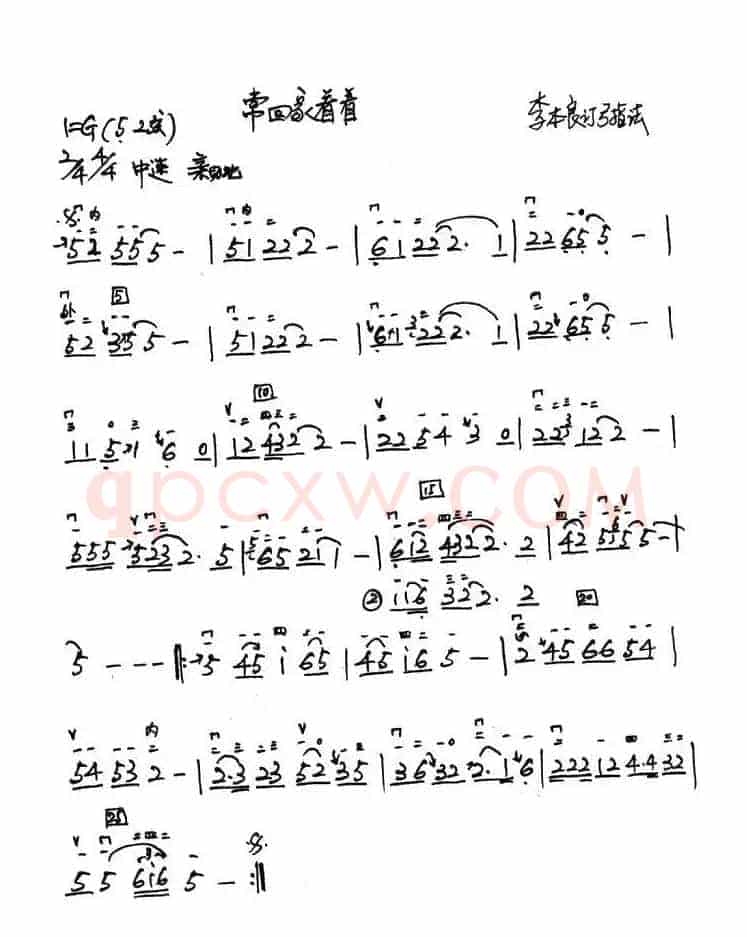 常回家看看
李本良订弓指法
1=G(5 2弦)
2/4 4/4 中速 亲切地
52 555 - | 51 222 - | 61 222. 1 | 22 655 - |
5
52 355 - | 51 222 - | 61 222. 1 | 22 655 - |
10
11 5 1 6 0 | 12 4322 - | 22 54 3 0 | 22 122 - |
qpcxw.COM
15
555 5232. 5 | 65 211 - | 612 4322. 2 | 42 5555 - |
② 116 322. 2
20
5 - - - ‖: 5 45 1 65 | 45 16 5 - | 2 45 66 54 |
54 53 2 - | 2.3 23 52 35 | 36 32 2. 1 6 | 222 12 4.4 32 |
25
5 5 616 5 - :‖